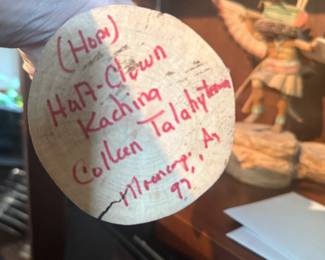 (Hopi)
Half-Clown
Kachina
Colleen Talahytewa
Moencopi, Az
97